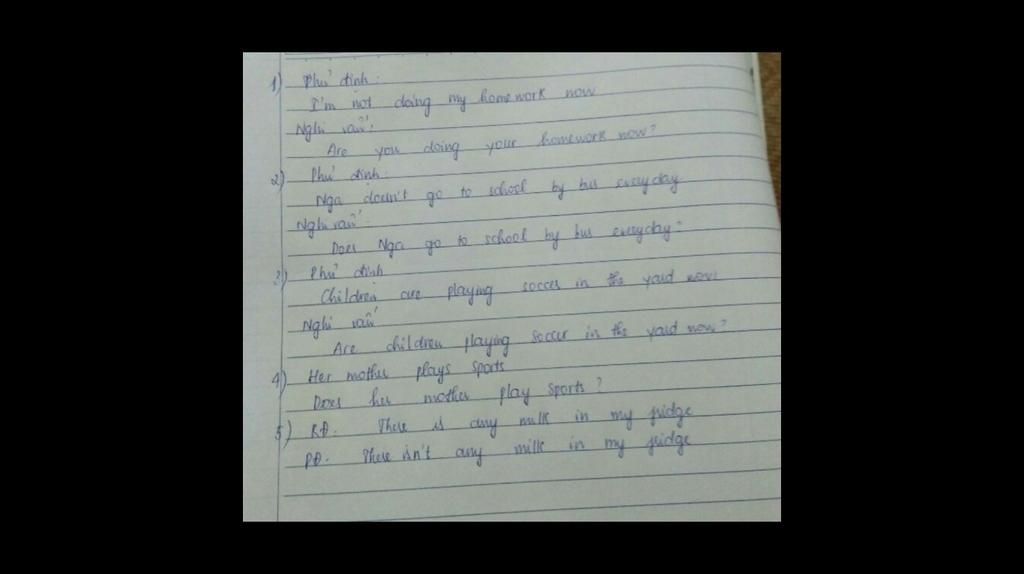 1) Phủ định:
I'm not doing my homework now
Nghi vấn:
Are you doing your homework now?
2) Phủ định:
Nga doesn't go to school by bus everyday
Nghi vấn:
Does Nga go to school by bus everyday?
3) Phủ định
Children are playing soccer in the yard now
Nghi vấn
Are children playing soccer in the yard now?
4) Her mother plays sports
Does her mother play sports?
5) KĐ. There is any milk in my fridge
PĐ. There isn't any milk in my fridge